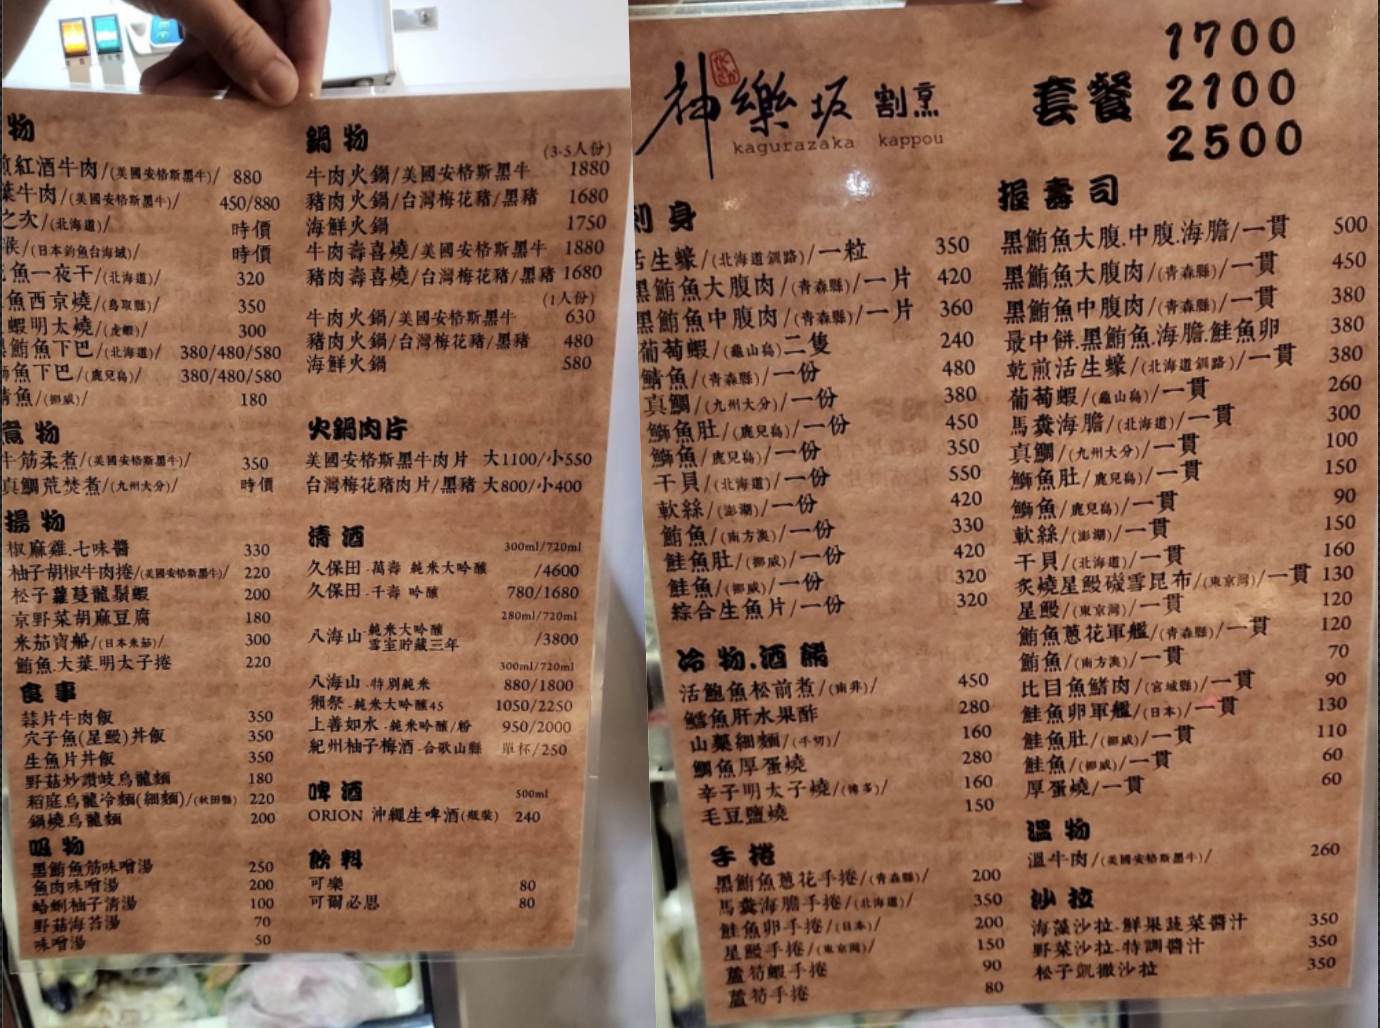 物
紅酒牛肉/(美國安格斯黑牛)/ 880
葉牛肉/(美國安格斯黑牛)/ 450/880
之次/(北海道)/ 時價
喉/(日本釣魚台海域)/ 時價
魚一夜干/(北海道)/ 320
魚西京燒/(鳥取縣)/ 350
蝦明太燒/(虎蝦)/ 300
黑鮪魚下巴/(北海道)/ 380/480/580
鰤魚下巴/(鹿兒島)/ 380/480/580
鯖魚/(挪威)/ 180
煮物
牛筋柔煮/(美國安格斯黑牛)/ 350
真鯛荒焚煮/(九州大分)/ 時價
揚物
椒麻雞.七味醬 330
柚子胡椒牛肉捲/(美國安格斯黑牛)/ 220
松子蘿蔓龍鬚蝦 200
京野菜胡麻豆腐 180
米茄寶船/(日本米茄)/ 300
鮪魚.大葉.明太子捲 220
食事
蒜片牛肉飯 350
穴子魚(星鰻)丼飯 350
生魚片丼飯 350
野菇炒讚岐烏龍麵 180
稻庭烏龍冷麵(細麵)/(秋田縣) 220
鍋燒烏龍麵 200
吸物
黑鮪魚筋味噌湯 250
魚肉味噌湯 200
蛤蜊柚子清湯 100
野菇海苔湯 70
味噌湯 50
鍋物
(3-5人份)
牛肉火鍋/美國安格斯黑牛 1880
豬肉火鍋/台灣梅花豬/黑豬 1680
海鮮火鍋 1750
牛肉壽喜燒/美國安格斯黑牛 1880
豬肉壽喜燒/台灣梅花豬/黑豬 1680
(1人份)
牛肉火鍋/美國安格斯黑牛 630
豬肉火鍋/台灣梅花豬/黑豬 480
海鮮火鍋 580
火鍋肉片
美國安格斯黑牛肉片 大1100/小550
台灣梅花豬肉片/黑豬 大800/小400
清酒
300ml/720ml
久保田-萬壽 純米大吟釀 /4600
久保田-千壽 吟釀 780/1680
280ml/720ml
八海山-純米大吟釀 雪室貯藏三年 /3800
300ml/720ml
八海山-特別純米 880/1800
獺祭-純米大吟釀45 1050/2250
上善如水-純米吟釀/粉 950/2000
紀州柚子梅酒-合歌山縣 單杯/250
啤酒
500ml
ORION 沖繩生啤酒(瓶裝) 240
飲料
可樂 80
可爾必思 80
神樂坂 割烹
kagurazaka kappou
套餐
1700
2100
2500
刺身
活生蠔/(北海道釧路)/一粒 350
黑鮪魚大腹肉/(青森縣)/一片 420
黑鮪魚中腹肉/(青森縣)/一片 360
葡萄蝦/(龜山島)二隻 240
鯖魚/(青森縣)/一份 480
真鯛/(九州大分)/一份 380
鰤魚肚/(鹿兒島)/一份 450
鰤魚/(鹿兒島)/一份 350
干貝/(北海道)/一份 550
軟絲/(澎湖)/一份 420
鮪魚/(南方澳)/一份 330
鮭魚肚/(挪威)/一份 420
鮭魚/(挪威)/一份 320
綜合生魚片/一份 320
冷物.酒餚
活鮑魚松前煮/(南非)/ 450
鱈魚肝水果酢 280
山藥細麵/(千切)/ 160
鯛魚厚蛋燒 280
辛子明太子燒/(博多)/ 160
毛豆鹽燒 150
手捲
黑鮪魚蔥花手捲/(青森縣)/ 200
馬糞海膽手捲/(北海道)/ 350
鮭魚卵手捲/(日本)/ 200
星鰻手捲/(東京灣)/ 150
蘆筍蝦手捲 90
蘆筍手捲 80
握壽司
黑鮪魚大腹.中腹.海膽/一貫 500
黑鮪魚大腹肉/(青森縣)/一貫 450
黑鮪魚中腹肉/(青森縣)/一貫 380
最中餅.黑鮪魚.海膽.鮭魚卵 380
乾煎活生蠔/(北海道釧路)/一貫 380
葡萄蝦/(龜山島)/一貫 260
馬糞海膽/(北海道)/一貫 300
真鯛/(九州大分)/一貫 100
鰤魚肚/(鹿兒島)/一貫 150
鰤魚/(鹿兒島)/一貫 90
軟絲/(澎湖)/一貫 150
干貝/(北海道)/一貫 160
炙燒星鰻磯雪昆布/(東京灣)/一貫 130
星鰻/(東京灣)/一貫 120
鮪魚蔥花軍艦/(青森縣)/一貫 120
鮪魚/(南方澳)/一貫 70
比目魚鰭肉/(宮城縣)/一貫 90
鮭魚卵軍艦/(日本)/一貫 130
鮭魚肚/(挪威)/一貫 110
鮭魚/(挪威)/一貫 60
厚蛋燒/一貫 60
溫物
溫牛肉/(美國安格斯黑牛)/ 260
沙拉
海藻沙拉-鮮果蔬菜醬汁 350
野菜沙拉-特調醬汁 350
松子凱撒沙拉 350